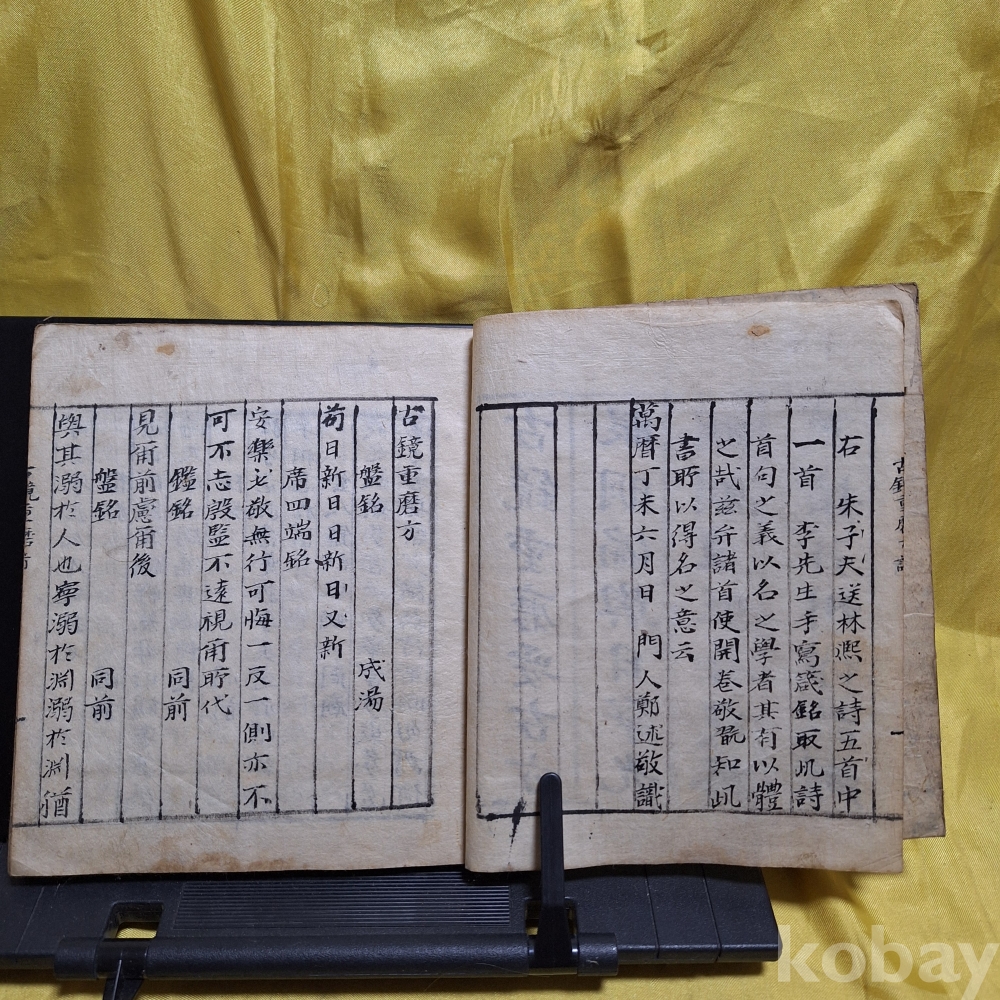 右 朱子夫送林熙之詩五首中
一首 李先生手寫箴銘取此詩
首句之義以名之學者其有以體
之哉玆弁諸首使開卷敬翫知此
書所以得名之意云
萬曆丁未六月日 門人鄭逑敬識
古鏡重磨方
盤銘 成湯
苟日新日日新日又新
席四端銘
安樂必敬無行可悔一反一側亦不
可不志殷監不遠視爾所代
鑑銘 同前
見爾前慮爾後
盤銘 同前
與其溺於人也寧溺於淵溺於淵猶
kobay